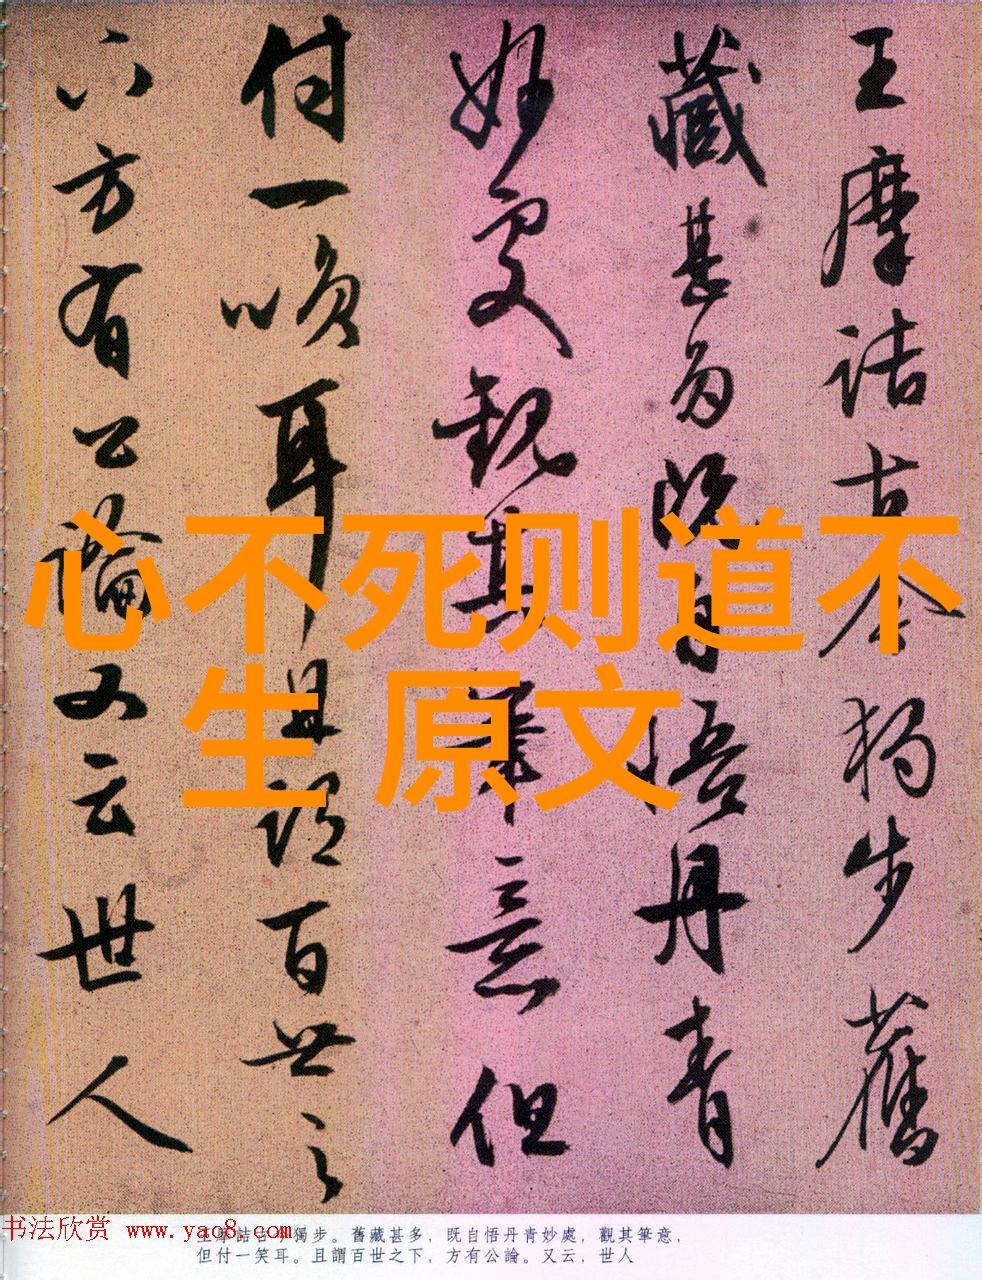 王摩詰古今獨步舊
藏甚多既自悟丹青
妙處觀其筆意但
付一咲耳且謂百世之
下方有公論又云世人
心不死则道不
生 原文
书法欣赏 www.yac8.com
王摩詰古今獨步。舊藏甚多，既自悟丹青妙處，觀其筆意，
但付一笑耳。且謂百世之下，方有公論。又云，世人